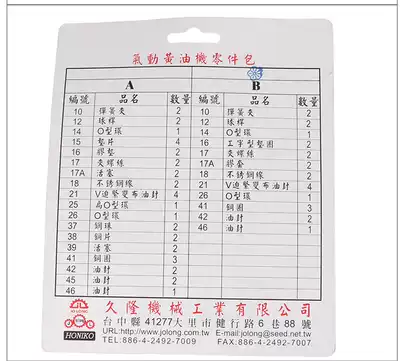 氣動黃油機零件包
A B
編號 品名 數量 編號 品名 數量
10 彈簧夾 2 10 彈簧夾 2
12 球桿 2 12 球桿 2
14 O型環 1 14 O型環 1
15 墊片 4 16 工字型墊圈 2
16 膠墊 2 17 夾螺絲 2
17 夾螺絲 2 17A 膠套 2
17A 活塞 2 18 不銹鋼線 2
18 不銹鋼線 2 21 V迫緊變布油封 4
21 V迫緊變布油封 4 26 O型環 1
25 高O型環 1 41 銅圈 3
26 O型環 1 42 油封 2
37 鋼珠 2 46 油封 1
38 銅片 2
39 活塞 2
41 銅圈 3
42 油封 2
45 油封 2
46 油封 1
JO LONG
HONIKO
久隆機械工業有限公司
台中縣 41277大里市健行路 6 巷 88 號
URL:http://www.jolong.com.tw E-mail:jolong@seed.net.tw
TEL:886-4-2492-7009 FAX:886-4-2492-7007